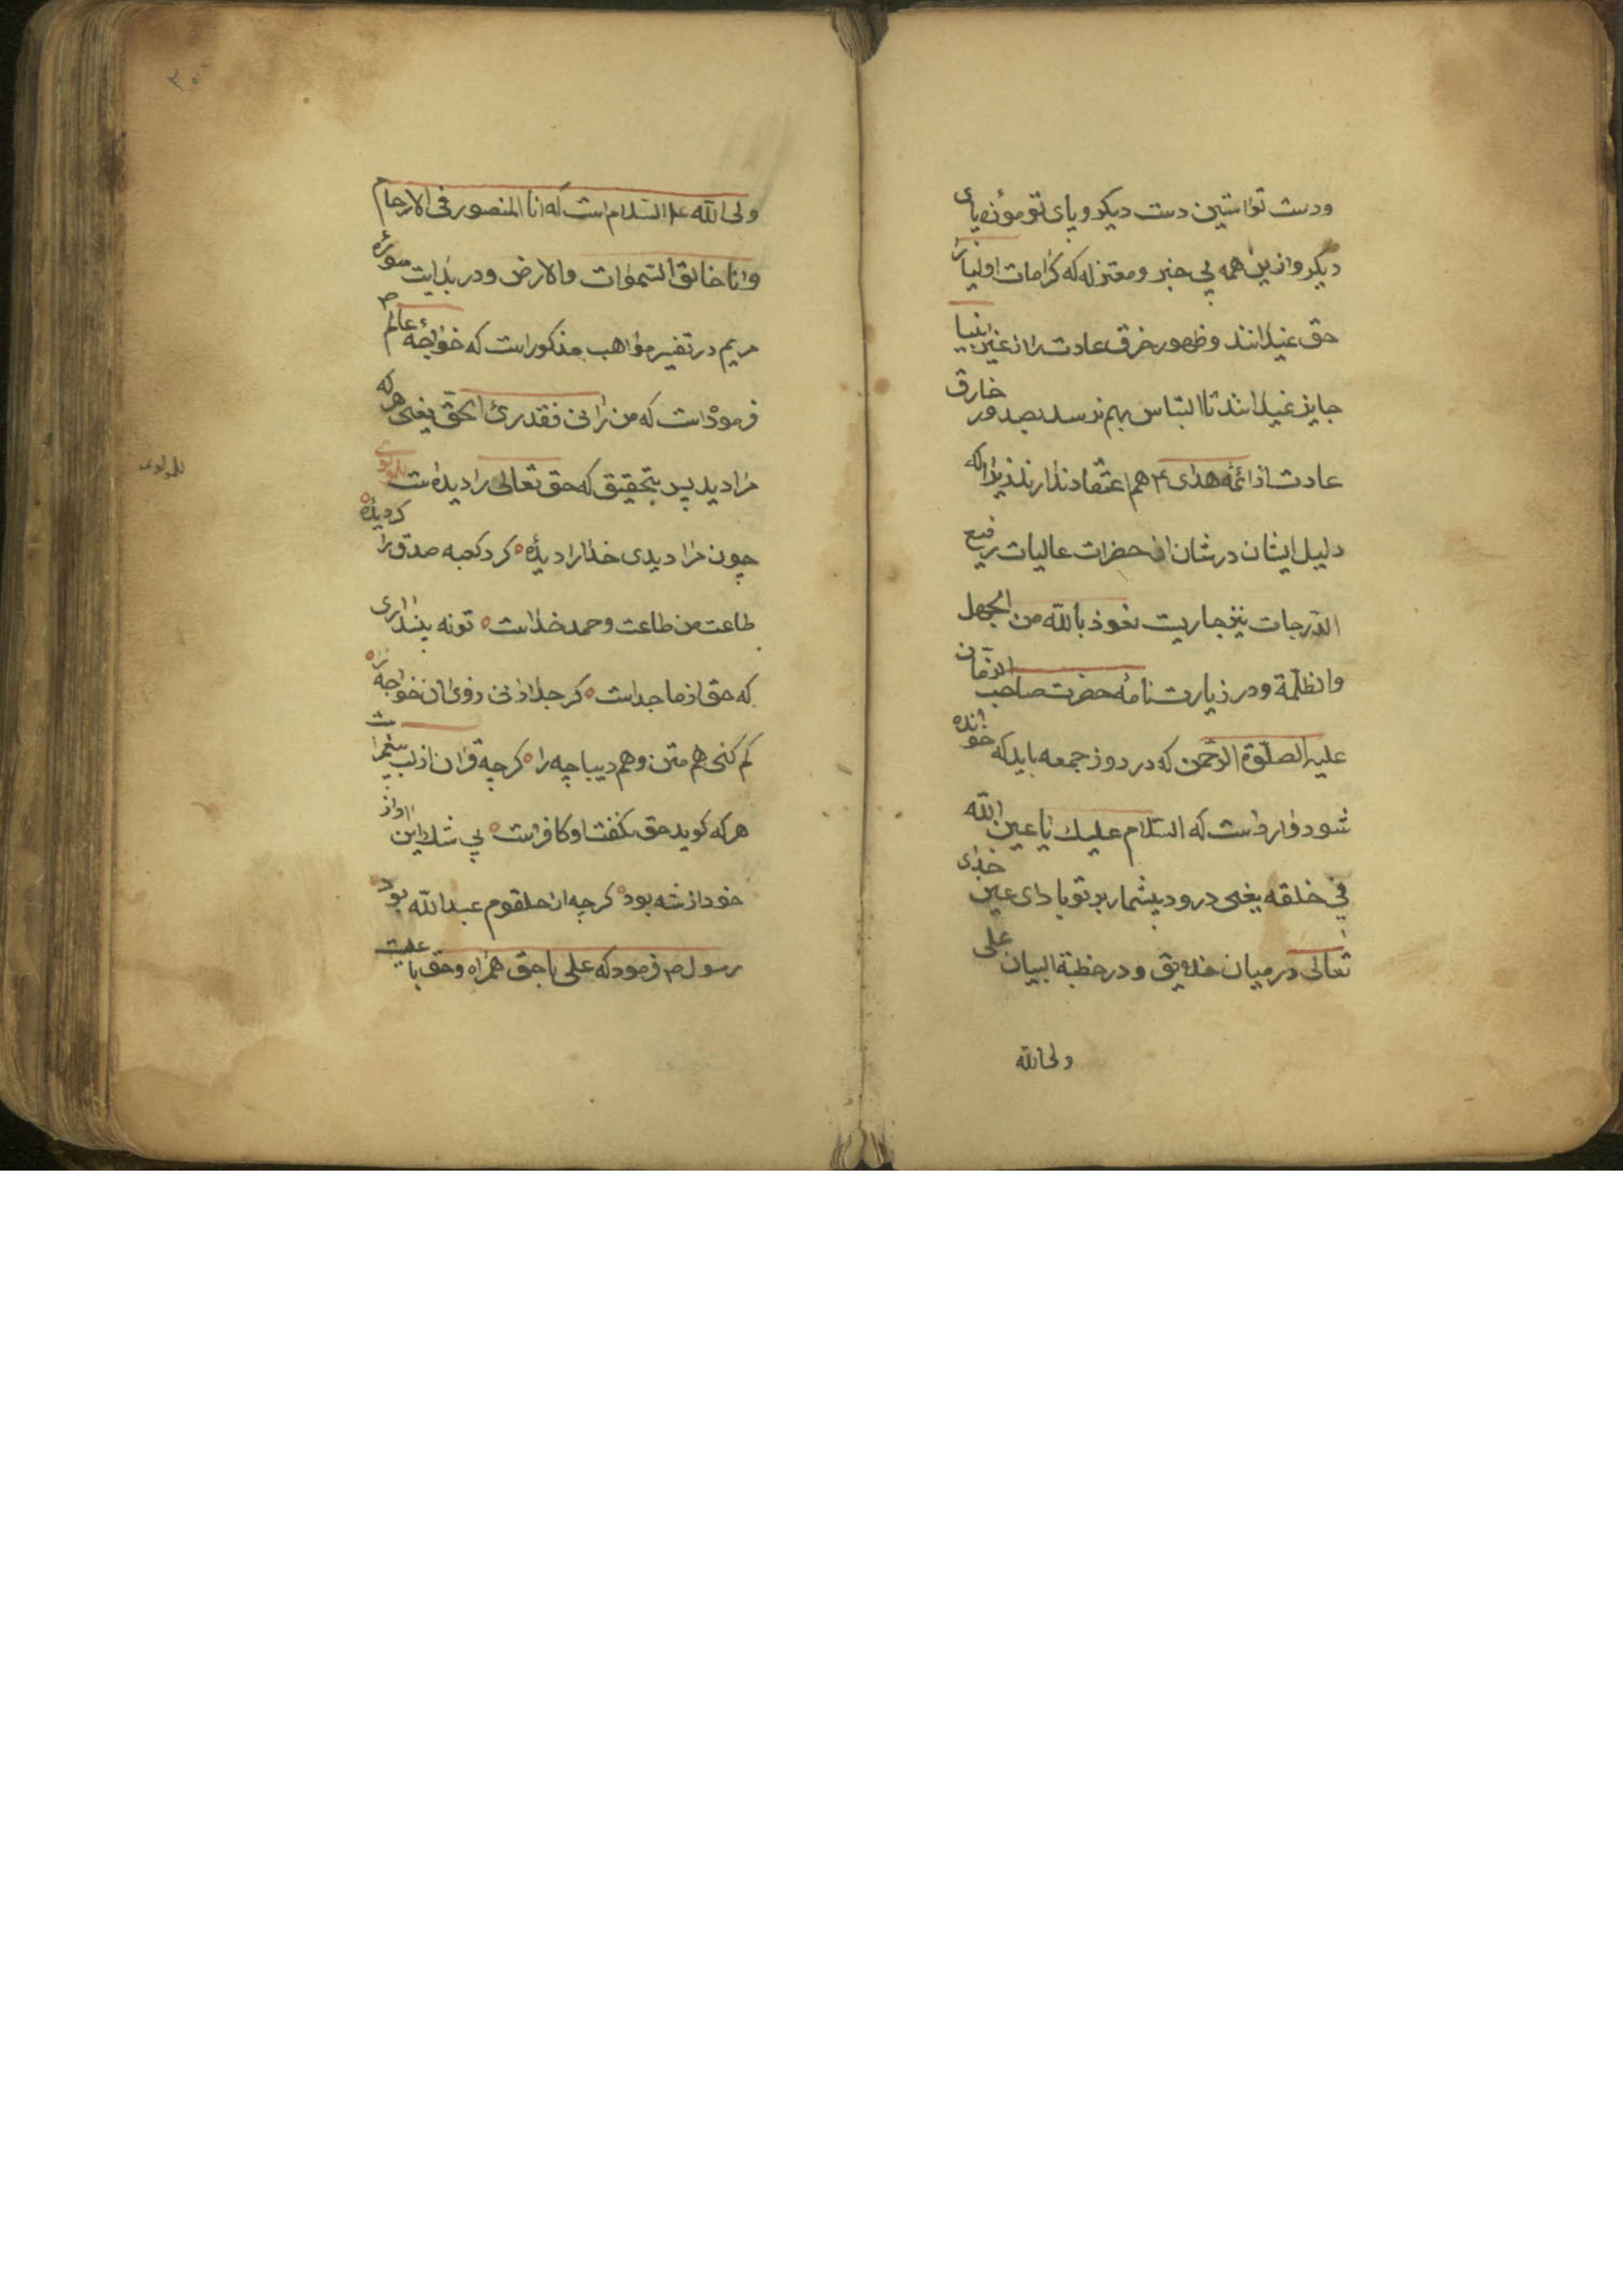 ودست تو استین دست دیکر و پای تو موزه پای
دیکر و ازین همه بی خبر و معتزله که کرامات اولیا را
حق نمیدانند و ظهور خرق عادت را از غیر انبیا
جایز نمیدانند تا التباس بهم نرسد بصدور خارق
عادت از ائمه هدی ۴ هم اعتقاد ندارند زیرا که
دلیل ایشان در شان ان حضرات عالیات رفیع
الدرجات نیز جاریست نعوذ بالله من الجهل
والظلمة و در زیارت نامه حضرت صاحب الزمان
علیه الصلوة الرحمن که در روز جمعه باید که خوانده
شود وارد است که السلام علیک یا عین الله
فی خلقه یعنی درود بیشمار بر تو باد ای عین خدای
تعالی در میان خلایق و در خطبة البیان علی
ولی الله
ولی الله علیه السلام است که انا المصور فی الارحام
وانا خالق السموات والارض و در بدایت سورهٔ
مریم در تفسیر مواهب مذکور است که خواجهٔ عالم ص
فرموده است که من رانی فقد رئ الحق یعنی هر که
مرا دید پس بتحقیق که حق تعالی را دیده است للمولوی
چون مرا دیدی خدا را دیدهٔ ه کرد کعبه صدق را کردیدهٔ ه
طاعت من طاعت و حمد خداست ه تو نه پنداری
که حق از ما جداست ه کر جدا دانی ز وی ان خواجه را ه
کم کنی هم متن و هم دیباچه را ه کرچه قران از لب پیغمبر است
هر که کوید حق نکفت او کافر است ه بی شک این اواز
خود از شه بود ه کرچه از حلقوم عبدالله بود ه
رسول ص فرمود که علی با حق همراه و حق با علیست
للمولوی